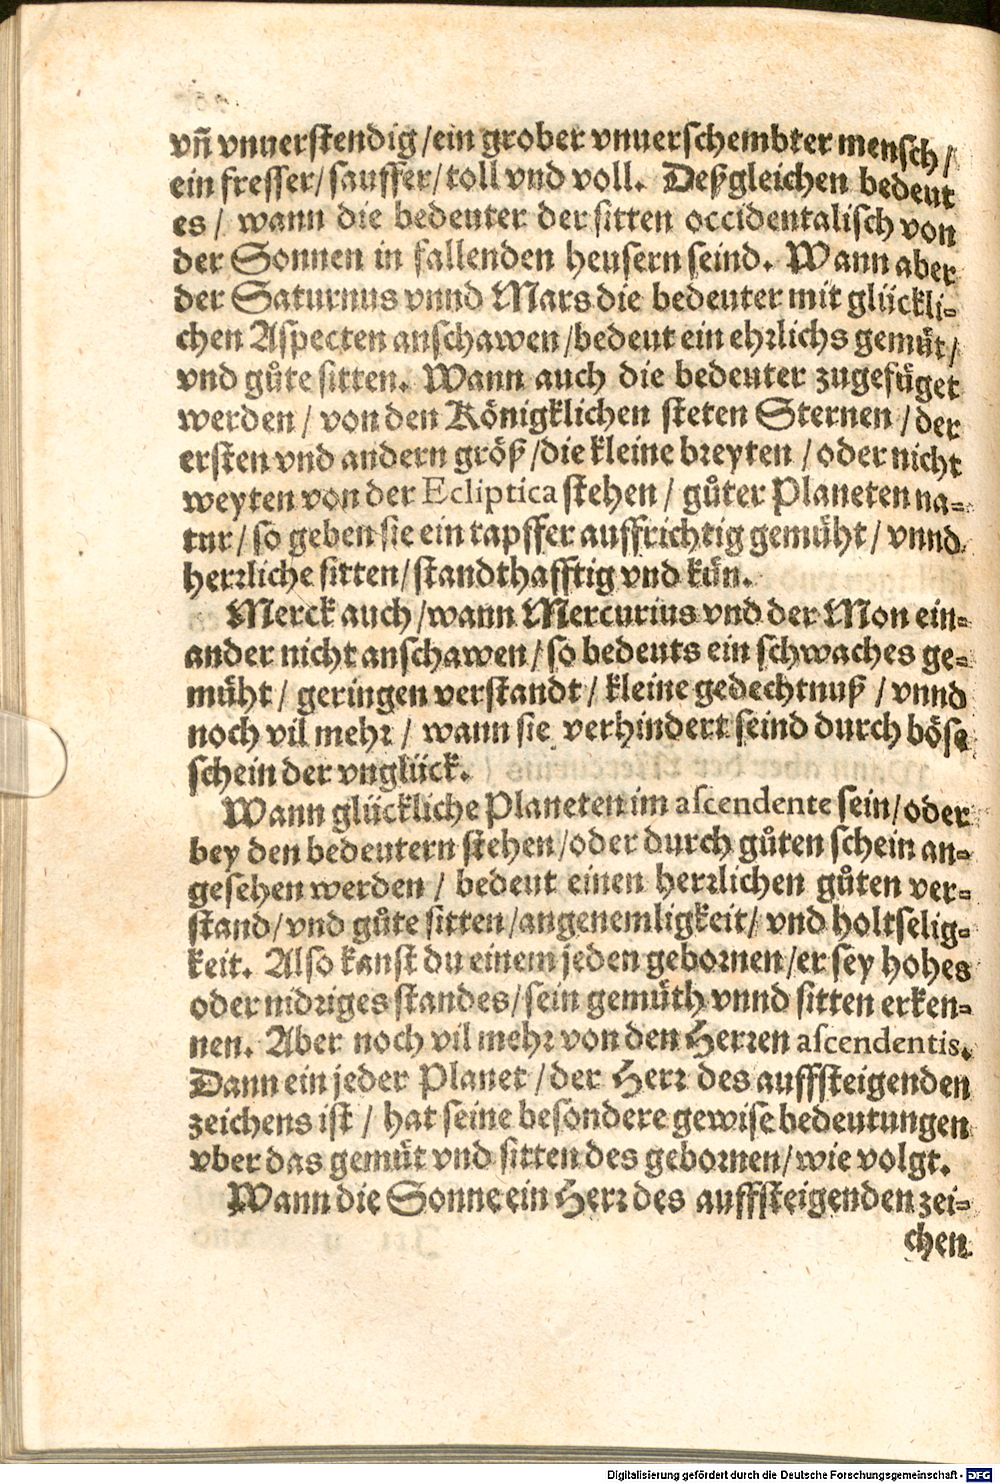 vñ vnuerstendig / ein grober vnuerschembter mensch /
ein fresser / sauffer / toll vnd voll. Deßgleichen bedeut
es / wann die bedeuter der sitten occidentalisch von
der Sonnen in fallenden heusern seind. Wann aber
der Saturnus vnnd Mars die bedeuter mit glückli-
chen Aspecten anschawen / bedeut ein ehrlichs gemüt /
vnd gůte sitten. Wann auch die bedeuter zugefüget
werden / von den Königklichen steten Sternen / der
ersten vnd andern größ / die kleine breyten / oder nicht
weyten von der Ecliptica stehen / gůter Planeten na-
tur / so geben sie ein tapffer auffrichtig gemüht / vnnd
herrliche sitten / standthafftig vnd kün.
Merck auch / wann Mercurius vnd der Mon ein-
ander nicht anschawen / so bedeuts ein schwaches ge-
müht / geringen verstandt / kleine gedechtnuß / vnnd
noch vil mehr / wann sie verhindert seind durch böse
schein der vnglück.
Wann glückliche Planeten im ascendente sein / oder
bey den bedeutern stehen / oder durch gůten schein an-
gesehen werden / bedeut einen herrlichen gůten ver-
stand / vnd gůte sitten / angenemligkeit / vnd holtselig-
keit. Also kanst du einem jeden gebornen / er sey hohes
oder nidriges standes / sein gemüth vnnd sitten erken-
nen. Aber noch vil mehr von den Herren ascendentis.
Dann ein jeder Planet / der Herr des auffsteigenden
zeichens ist / hat seine besondere gewise bedeutungen
vber das gemüt vnd sitten des gebornen / wie volgt.
Wann die Sonne ein Herr des auffsteigenden zei-
chen
Digitalisierung gefördert durch die Deutsche Forschungsgemeinschaft - DFG